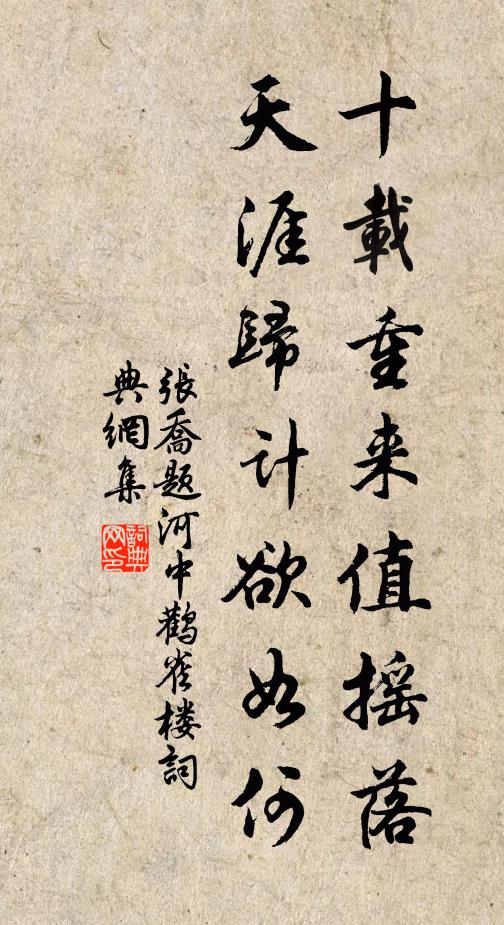 十載重来值摇落
天涯歸計欲如何
張喬题河中鹳雀楼詞
典網集
詞典
网印